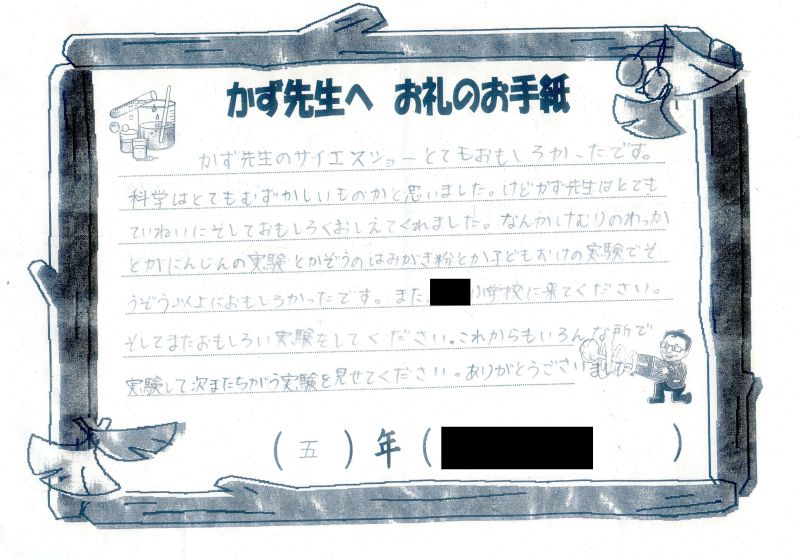 かず先生へ お礼のお手紙
かず先生のサイエンスショーとてもおもしろかったです。
科学はとてもむずかしいものかと思いました。けどかず先生はとても
ていねいにそしておもしろくおしえてくれました。なんかけむりのわっか
とかにんじんの実験とかぞうのはみがき粉とか子どもむけの実験でそ
うぞう以上におもしろかったです。また 小学校に来てください。
そしてまたおもしろい実験をしてください。これからもいろんな所で
実験して次またちがう実験を見せてください。ありがとうございました。
(五)年( )